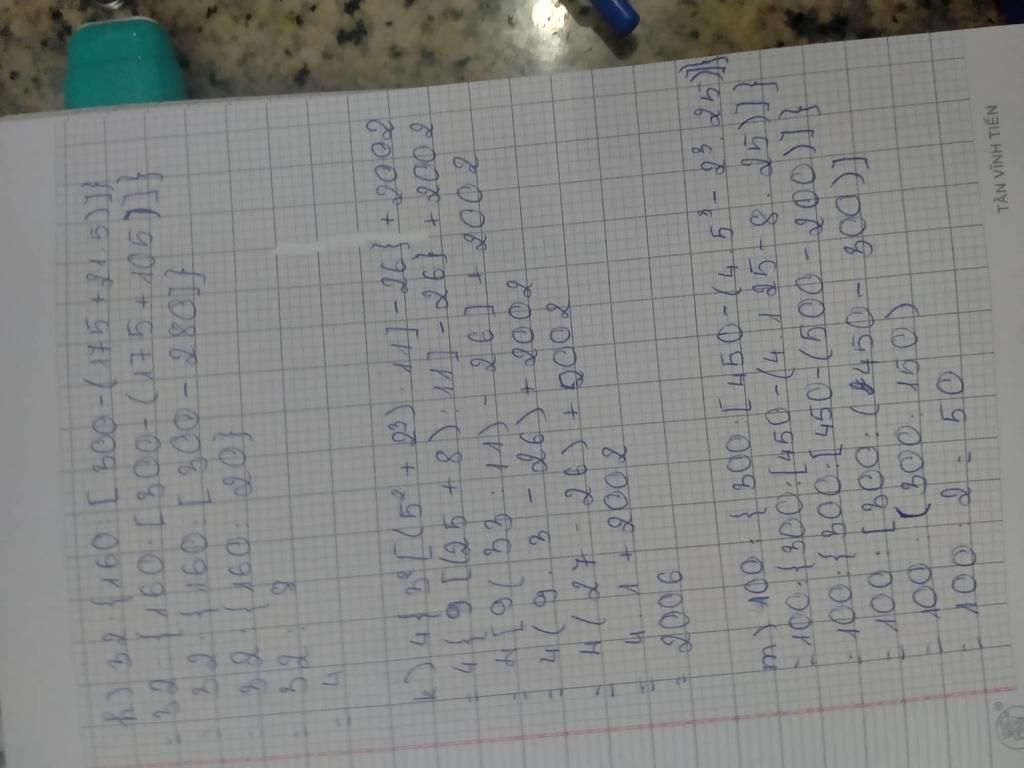 h) 32 : {160 : [300 - (175 + 21.5)]}
= 32 : {160 : [300 - (175 + 105)]}
= 32 : {160 : [300 - 280]}
= 32 : {160 : 20}
= 32 : 8
= 4
k) 4{3² [(5² + 2³) : 11] - 26} + 2002
= 4{9 [(25 + 8) : 11] - 26} + 2002
= 4[9(33 : 11) - 26] + 2002
= 4(9. 3 - 26) + 2002
= 4(27 - 26) + 2002
= 4. 1 + 2002
= 2006
m) 100 : {300 : [450 - (4. 5³ - 2³. 25)]}
= 100 : {300 : [450 - (4. 125 - 8. 25)]}
= 100 : {300 : [450 - (500 - 200)]}
= 100 : [300 : (450 - 300)]
= 100 : (300 : 150)
= 100 : 2 = 50
TÂN VĨNH TIẾN